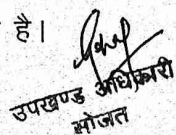 है।
उपखण्ड अधिकारी
सोजत